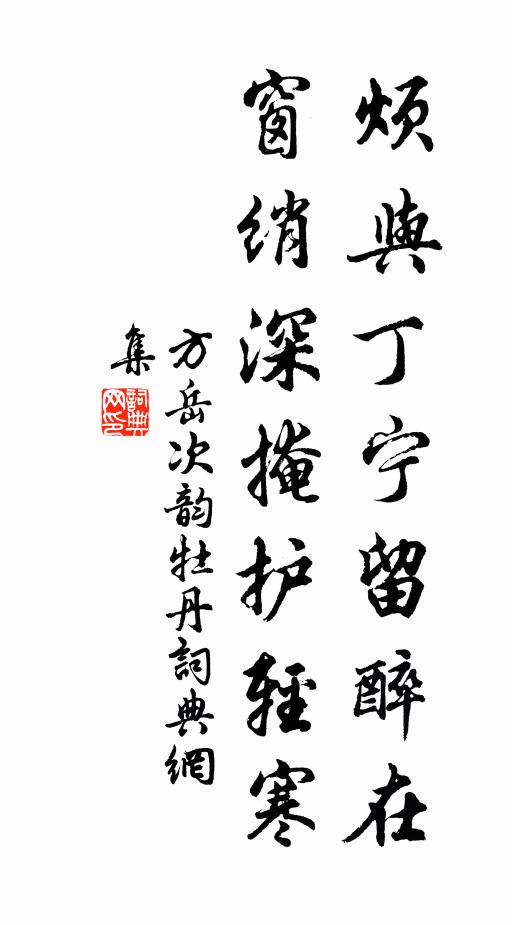 烦與丁宁留醉在
窗绡深掩护輕寒
方岳次韵牡丹詞典網
集
詞典
网印